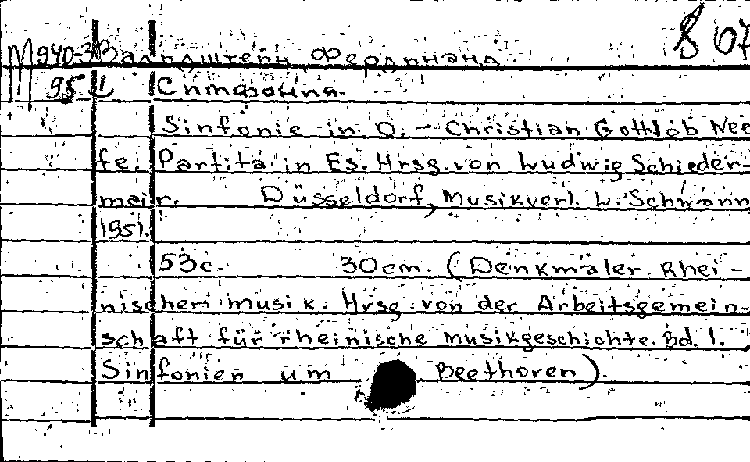 М940-3 Вальдштейн Фердинанд. 807
95 Симфония.
Sinfonie in D. - Christian Gottlob Nee
fe. Partita in Es. Hrsg. von Ludwig Schieder-
mair. Düsseldorf, Musikverl. L. Schwann
1951.
53c. 30cm. (Denkmäler Rhei-
nischer Musik. Hrsg. von der Arbeitsgemein-
schaft für rheinische Musikgeschichte. Bd. 1.
Sinfonien um Beethoven).